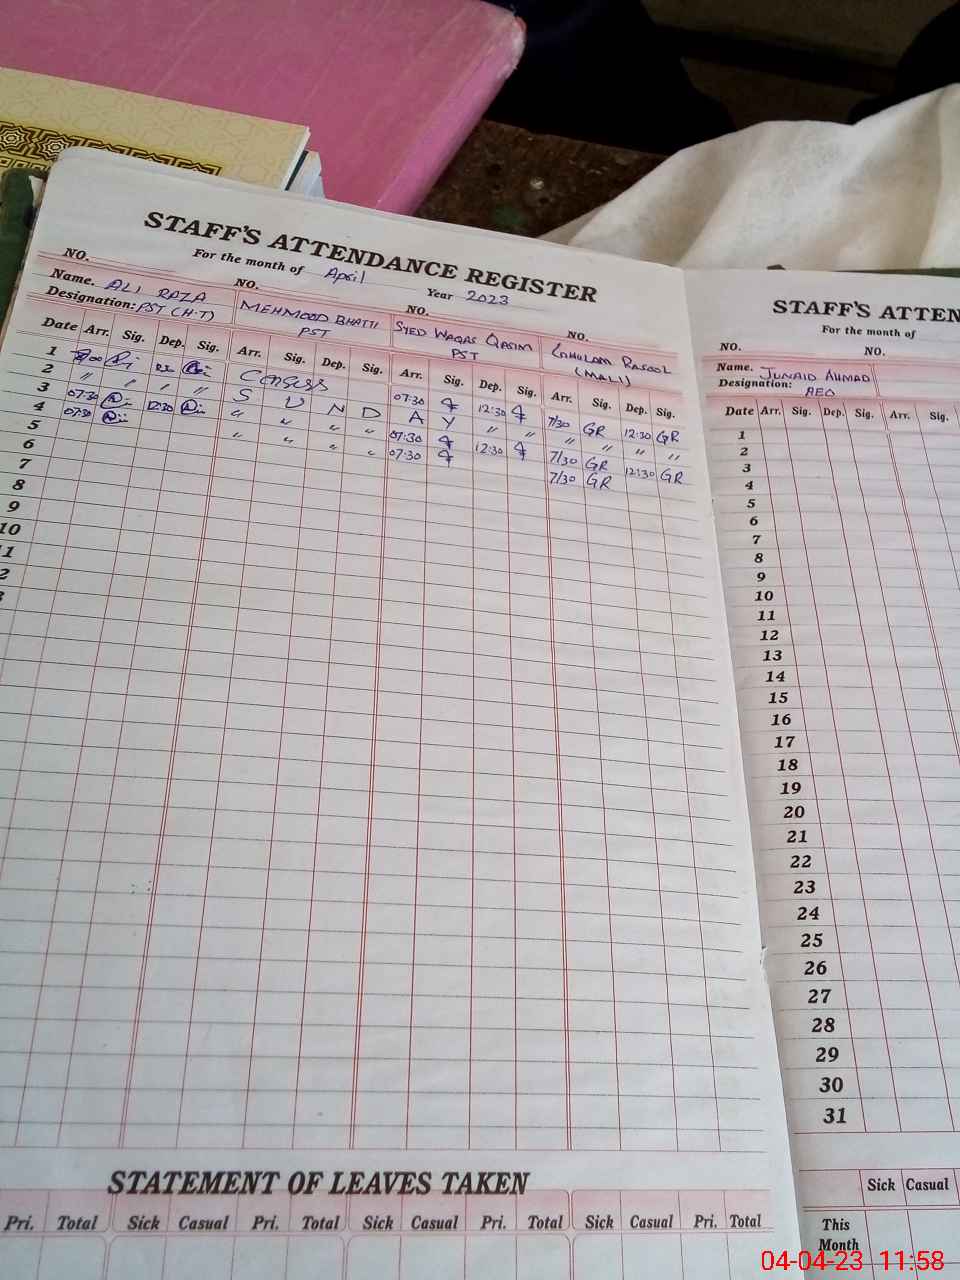 STAFF'S ATTENDANCE REGISTER
For the month of April Year 2023
NO. NO. NO. NO.
Name. ALI RAZA MEHMOOD BHATTI SYED WAQAS QASIM GHULAM RASOOL
Designation: PST (H.T) PST PST (MALI)
Date Arr. Sig. Dep. Sig. Arr. Sig. Dep. Sig. Arr. Sig. Dep. Sig. Arr. Sig. Dep. Sig.
1 Census 07:30 12:30 7/30 GR 12:30 GR
2 " " " " S U N D A Y " " " " " "
3 07:30 12:30 " " " " 07:30 12:30 7/30 GR 12:30 GR
4 07:30 " " " " 07:30 7/30 GR
5
6
7
8
9
10
11
2
STATEMENT OF LEAVES TAKEN
Pri. Total Sick Casual Pri. Total Sick Casual Pri. Total Sick Casual Pri. Total
STAFF'S ATTEN
For the month of
NO. NO.
Name. JUNAID AHMAD
Designation: AEO
Date Arr. Sig. Dep. Sig. Arr. Sig.
1
2
3
4
5
6
7
8
9
10
11
12
13
14
15
16
17
18
19
20
21
22
23
24
25
26
27
28
29
30
31
Sick Casual
This
Month
04-04-23 11:58